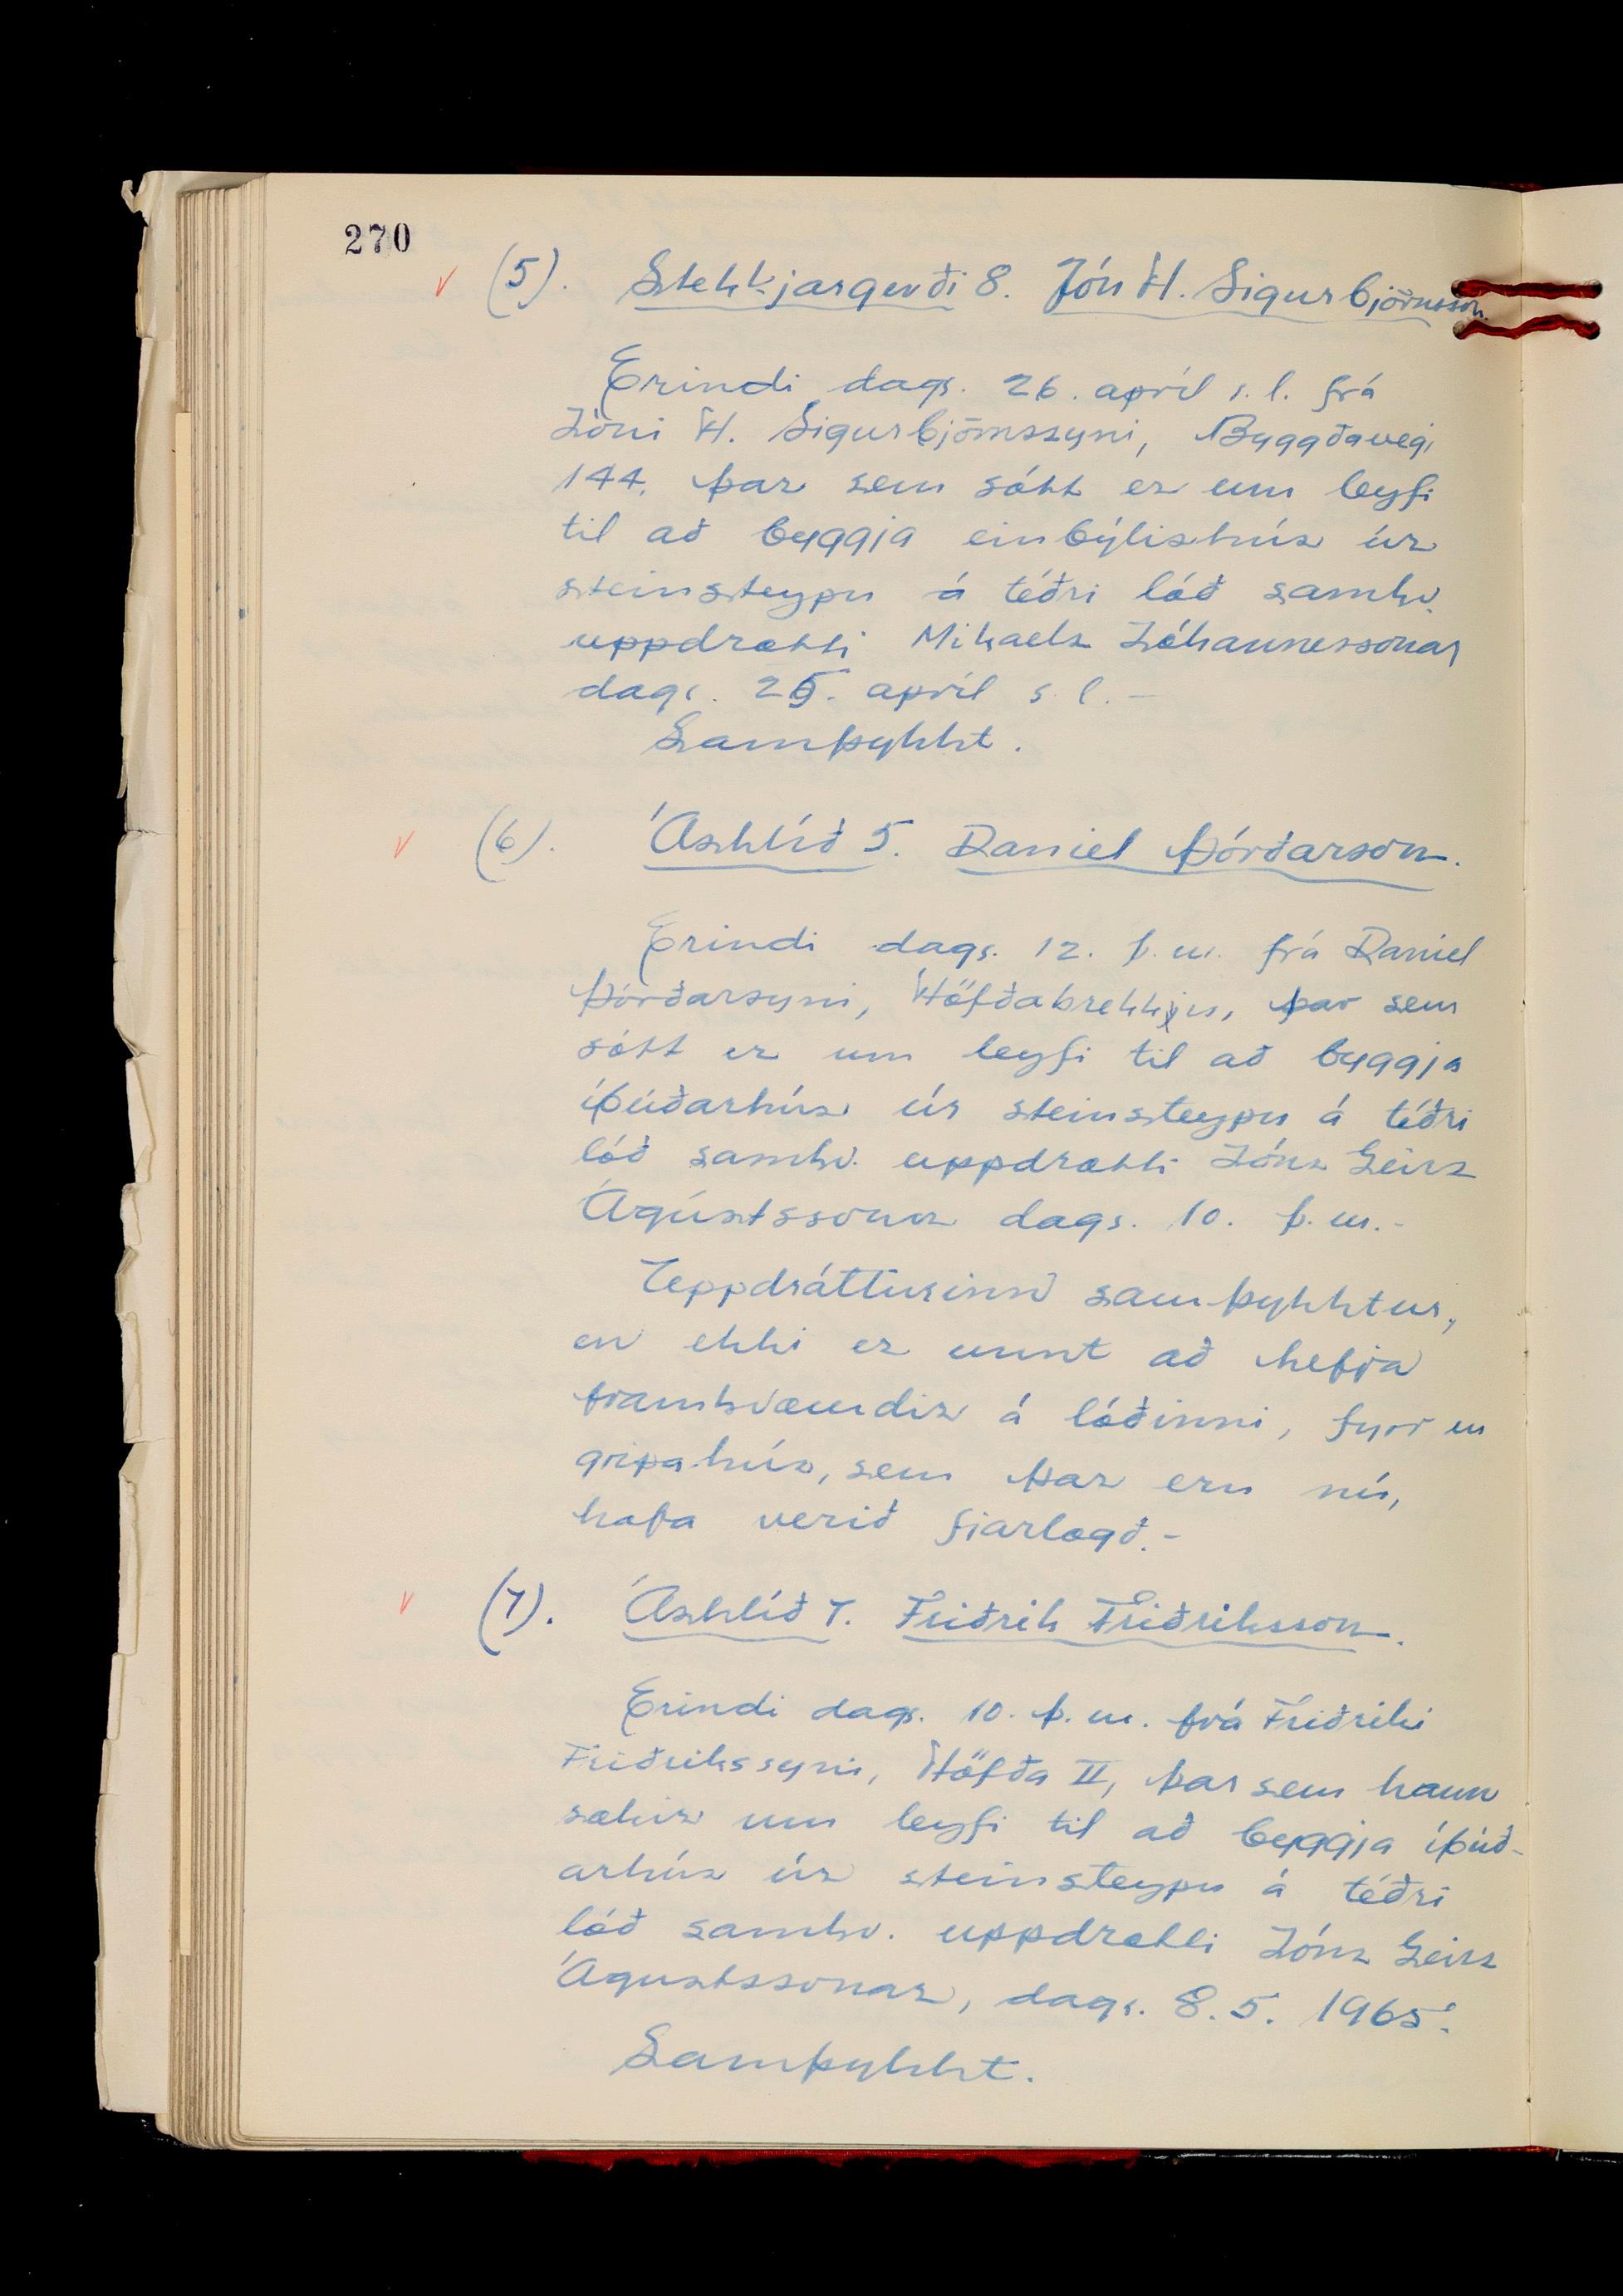 270
(5). Stekkjargerði 8. Jón H. Sigurbjörnsson.
Erindi dags. 26. apríl s.l. frá
Jóni H. Sigurbjörnssyni, Byggðavegi
144, þar sem sótt er um leyfi
til að byggja einbýlishús úr
steinsteypu á téðri lóð samkv.
uppdrætti Mikaels Jóhannessonar
dags. 25. apríl s.l. -
Samþykkt.
(6). Áshlíð 5. Daníel Þórðarson.
Erindi dags. 12. þ.m. frá Daníel
Þórðarsyni, Höfðabrekku, þar sem
sótt er um leyfi til að byggja
íbúðarhús úr steinsteypu á téðri
lóð samkv. uppdrætti Jóns Geirs
Ágústssonar dags. 10. þ.m. -
Uppdrátturinn samþykktur,
en ekki er unnt að hefja
framkvæmdir á lóðinni, fyrr en
gripahús, sem þar eru nú,
hafa verið fjarlægð. -
(7). Áshlíð 7. Friðrik Friðriksson.
Erindi dags. 10. þ.m. frá Friðriki
Friðrikssyni, Höfða II, þar sem hann
sækir um leyfi til að byggja íbúð-
arhús úr steinsteypu á téðri
lóð samkv. uppdrætti Jóns Geirs
Ágústssonar, dags. 8.5. 1965.
Samþykkt.